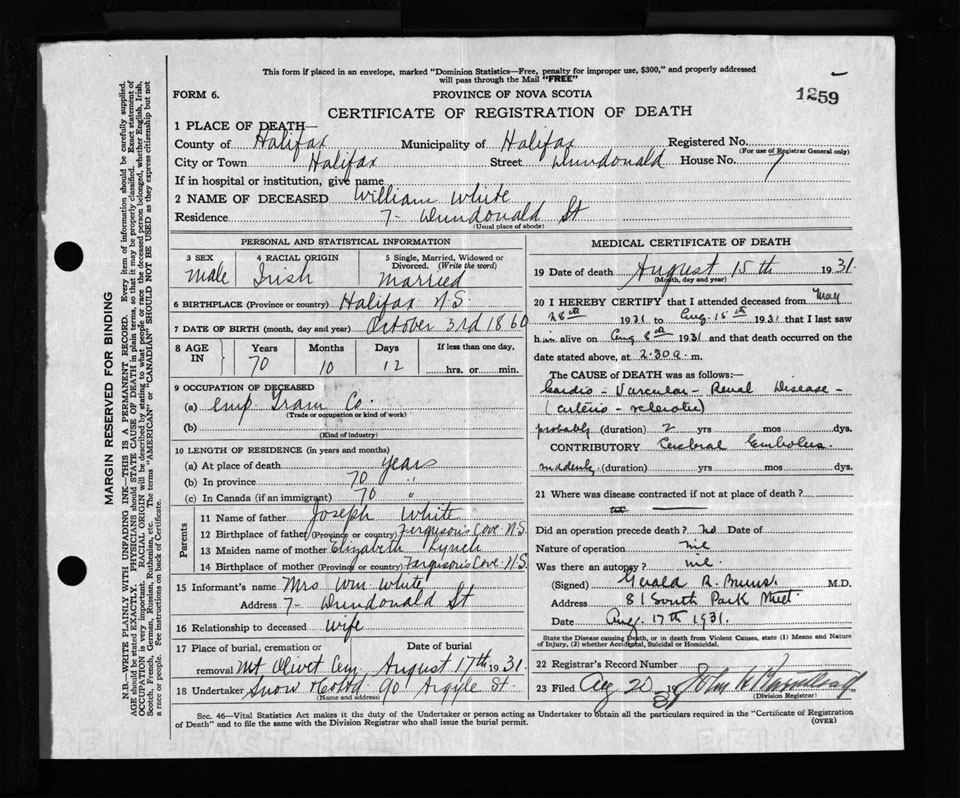 This form if placed in an envelope, marked "Dominion Statistics—Free, penalty for improper use, $300," and properly addressed
will pass through the Mail "FREE"
FORM 6.
PROVINCE OF NOVA SCOTIA
1259
CERTIFICATE OF REGISTRATION OF DEATH
1 PLACE OF DEATH—
County of Halifax Municipality of Halifax Registered No.
(For use of Registrar General only)
City or Town Halifax Street Dundonald House No. 7
If in hospital or institution, give name
2 NAME OF DECEASED William White
Residence 7- Dundonald St
(Usual place of abode)
PERSONAL AND STATISTICAL INFORMATION
3 SEX 4 RACIAL ORIGIN 5 Single, Married, Widowed or Divorced. (Write the word)
Male Irish Married
6 BIRTHPLACE (Province or country) Halifax N.S.
7 DATE OF BIRTH (month, day and year) October 3rd 1860
8 AGE IN Years Months Days If less than one day,
70 10 12 hrs. or min.
9 OCCUPATION OF DECEASED
(a) emp. Tram Co.
(Trade or occupation or kind of work)
(b)
(Kind of industry)
10 LENGTH OF RESIDENCE (in years and months)
(a) At place of death years
(b) In province 70 "
(c) In Canada (if an immigrant) 70 "
Parents
11 Name of father Joseph White
12 Birthplace of father (Province or country) Ferguson's Cove N.S.
13 Maiden name of mother Elizabeth Lynch
14 Birthplace of mother (Province or country) Ferguson's Cove N.S.
15 Informant's name Mrs Wm. White
Address 7- Dundonald St
16 Relationship to deceased Wife
17 Place of burial, cremation or removal Date of burial
Mt Olivet Cem. August 17th 1931.
18 Undertaker Snow & Co Ltd 90 Argyle St.
(Name and address)
MEDICAL CERTIFICATE OF DEATH
19 Date of death August 15th 1931.
(Month, day and year)
20 I HEREBY CERTIFY that I attended deceased from May
28th 1931 to Aug. 15th 1931 that I last saw
him alive on Aug 8th 1931 and that death occurred on the
date stated above, at 2.30 a. m.
The CAUSE OF DEATH was as follows:—
Cardio - Vascular - Renal Disease -
(arterio - sclerotic)
probably (duration) 2 yrs mos dys.
CONTRIBUTORY Cerebral Embolus.
suddenly (duration) yrs mos dys.
21 Where was disease contracted if not at place of death?
Did an operation precede death? no Date of
Nature of operation nil
Was there an autopsy? nil.
(Signed) Gerald R. Burns. M.D.
Address 81 South Park Street.
Date Aug. 17th 1931.
State the Disease causing Death, or in death from Violent Causes, state (1) Means and Nature
of Injury, (2) whether Accidental, Suicidal or Homicidal.
22 Registrar's Record Number
23 Filed Aug 20 1931 John
(Division Registrar)
Sec. 46—Vital Statistics Act makes it the duty of the Undertaker or person acting as Undertaker to obtain all the particulars required in the "Certificate of Registration
of Death" and to file the same with the Division Registrar who shall issue the burial permit.
(OVER)
MARGIN RESERVED FOR BINDING
N.B.—WRITE PLAINLY WITH UNFADING INK—THIS IS A PERMANENT RECORD. Every item of information should be carefully supplied.
AGE should be stated EXACTLY. PHYSICIANS should STATE CAUSE OF DEATH in plain terms, so that it may be properly classified. Exact statement of
OCCUPATION is very important. RACIAL ORIGIN will be described by stating to what people or race the deceased person belonged, whether English, Irish,
Scotch, French, German, Russian, Ruthenian, etc. The terms "AMERICAN" or "CANADIAN" SHOULD NOT BE USED as they express citizenship but not
a race or people. See instructions on back of Certificate.